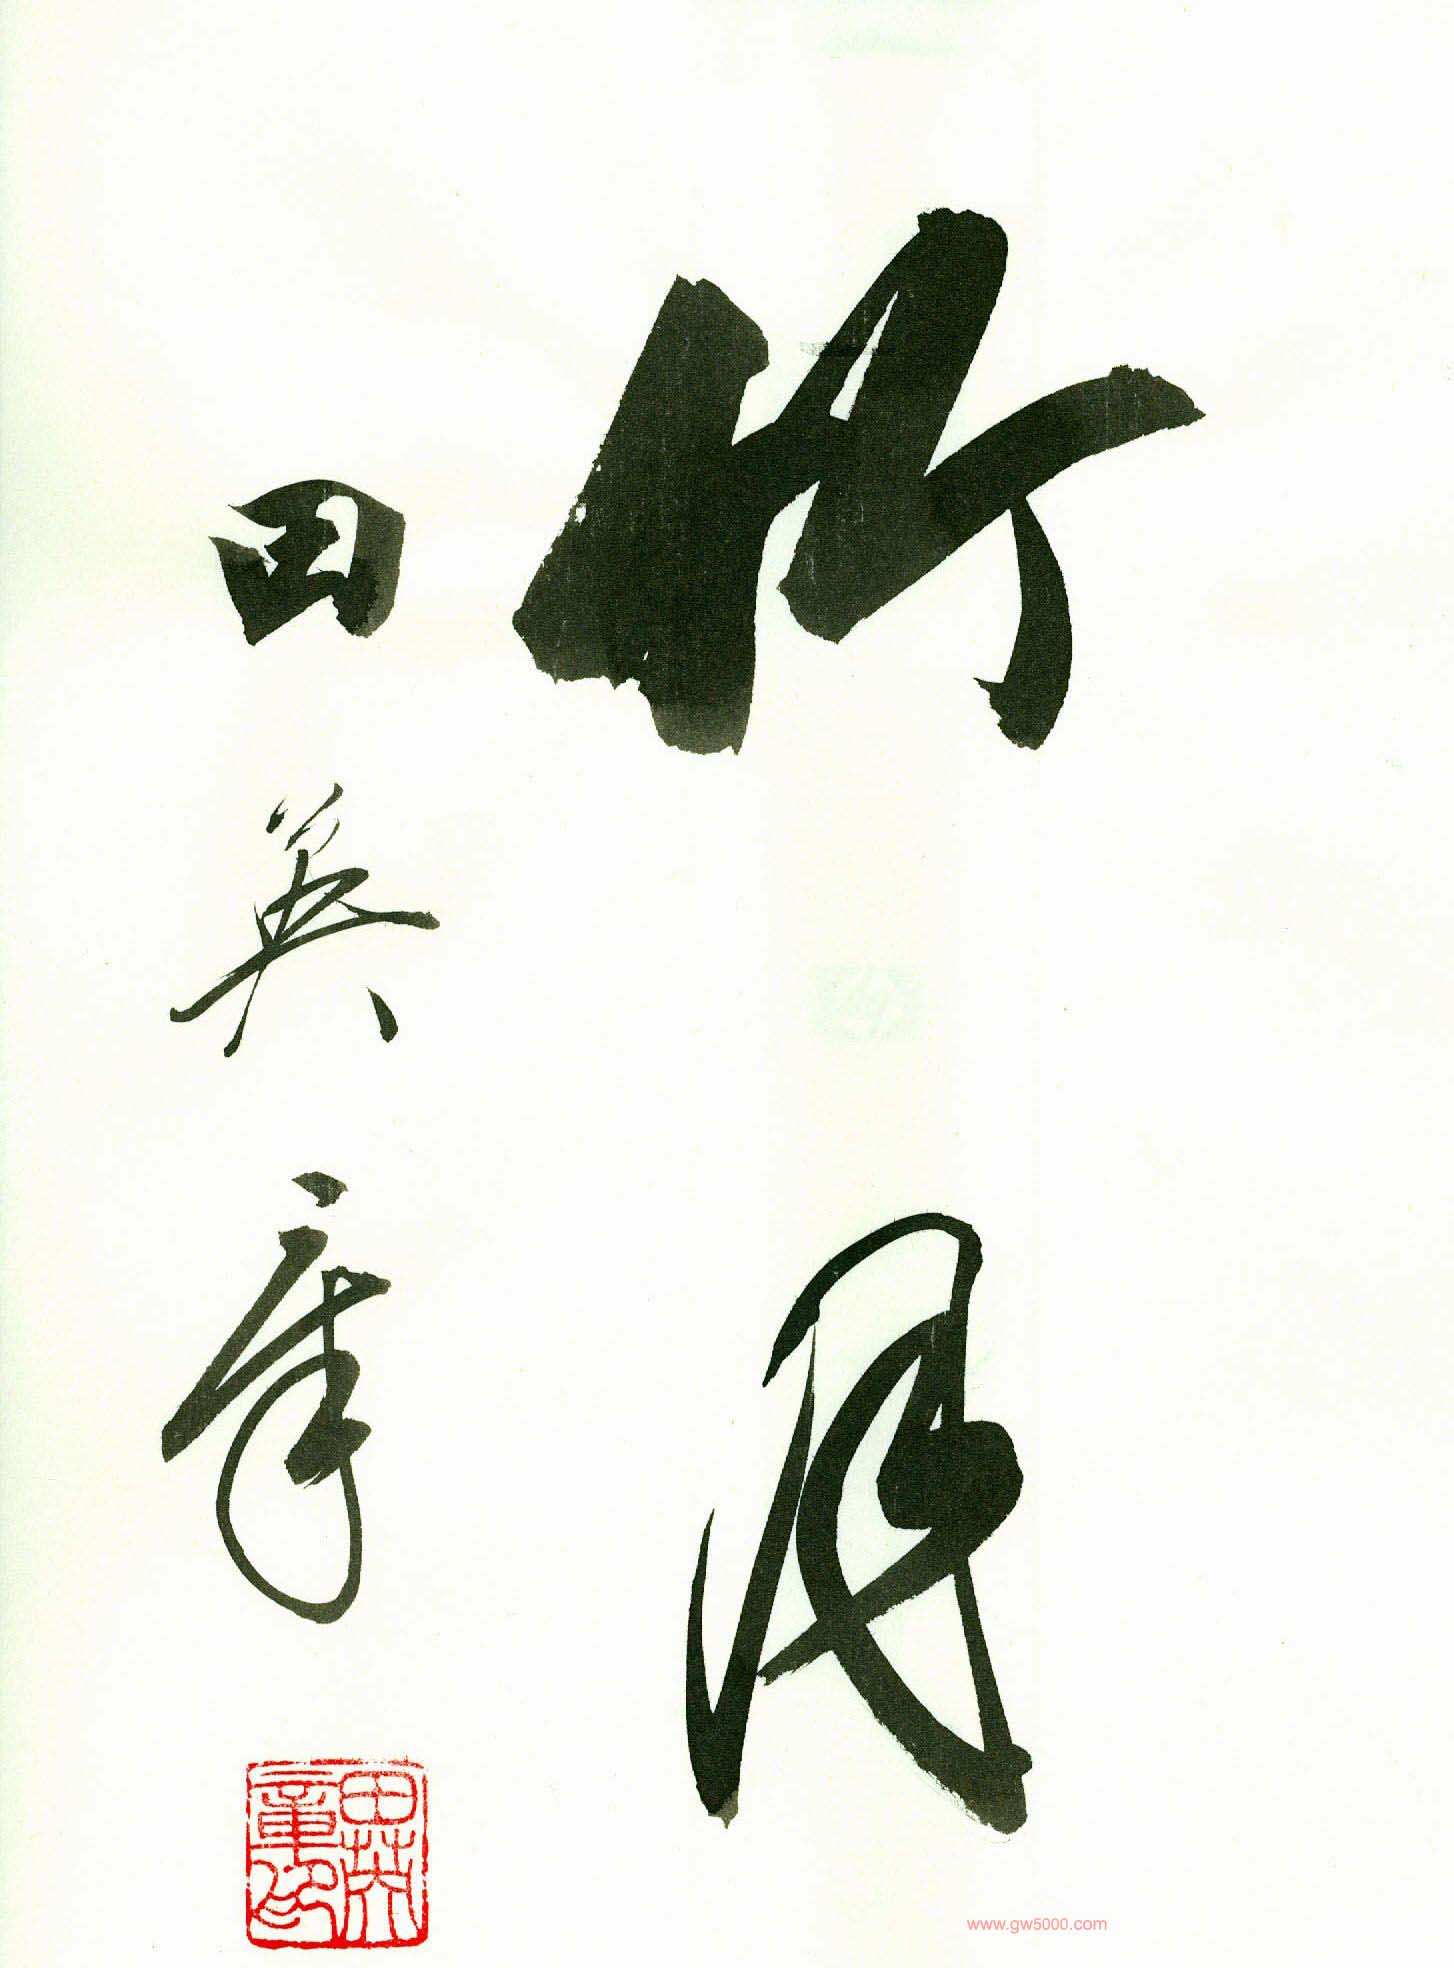 竹
田英章
田英章印
www.gw5000.com